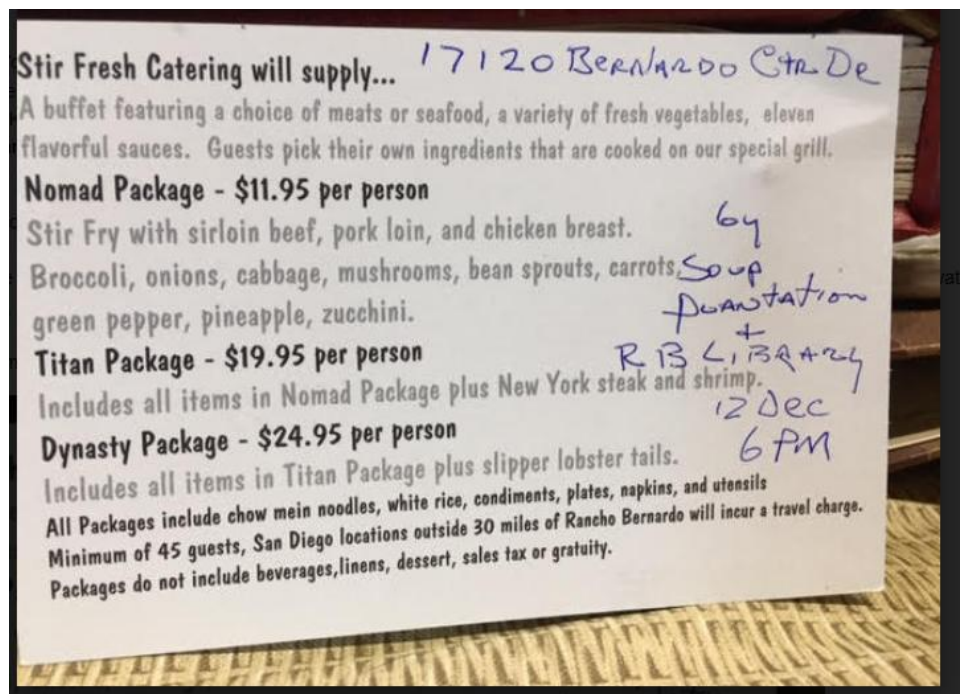 Stir Fresh Catering will supply... 17120 BERNARDO CTR DR
A buffet featuring a choice of meats or seafood, a variety of fresh vegetables, eleven
flavorful sauces. Guests pick their own ingredients that are cooked on our special grill.
Nomad Package - $11.95 per person
Stir Fry with sirloin beef, pork loin, and chicken breast. by
Broccoli, onions, cabbage, mushrooms, bean sprouts, carrots, Soup
green pepper, pineapple, zucchini. PLANTATION
+
Titan Package - $19.95 per person RB LIBRARY
Includes all items in Nomad Package plus New York steak and shrimp.
12 Dec
Dynasty Package - $24.95 per person 6 PM
Includes all items in Titan Package plus slipper lobster tails.
All Packages include chow mein noodles, white rice, condiments, plates, napkins, and utensils
Minimum of 45 guests, San Diego locations outside 30 miles of Rancho Bernardo will incur a travel charge.
Packages do not include beverages,linens, dessert, sales tax or gratuity.